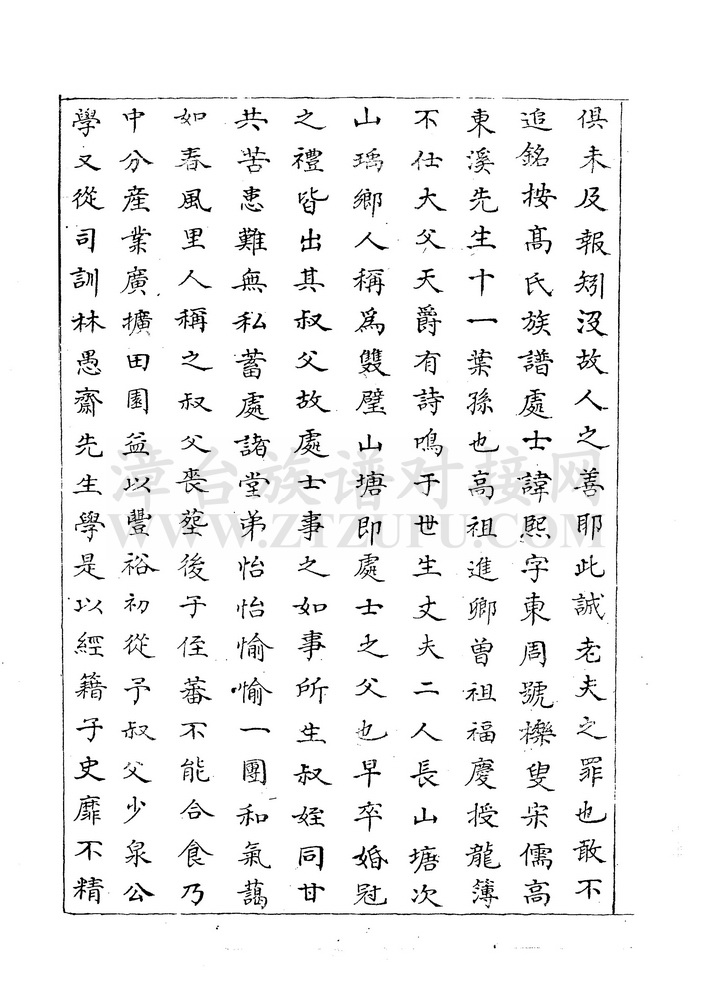 俱未及報矧沒故人之善耶此誠老夫之罪也敢不
追銘按高氏族譜處士諱熙字東周號櫟叟宋儒高
東溪先生十一葉孫也高祖進卿曾祖福慶授龍簿
不仕大父天爵有詩鳴于世生丈夫二人長山塘次
山瑀鄉人稱爲雙璧山塘即處士之父也早卒婚冠
之禮皆出其叔父故處士事之如事所生叔姪同甘
共苦患難無私蓄處諸堂弟怡怡愉愉一團和氣藹
如春風里人稱之叔父喪塟後子侄蕃不能合食乃
中分産業廣擴田園益以豐裕初從予叔父少泉公
學又從司訓林愚齋先生學是以經籍子史靡不精
漳台族谱对接网
WWW.ZTZUPU.COM